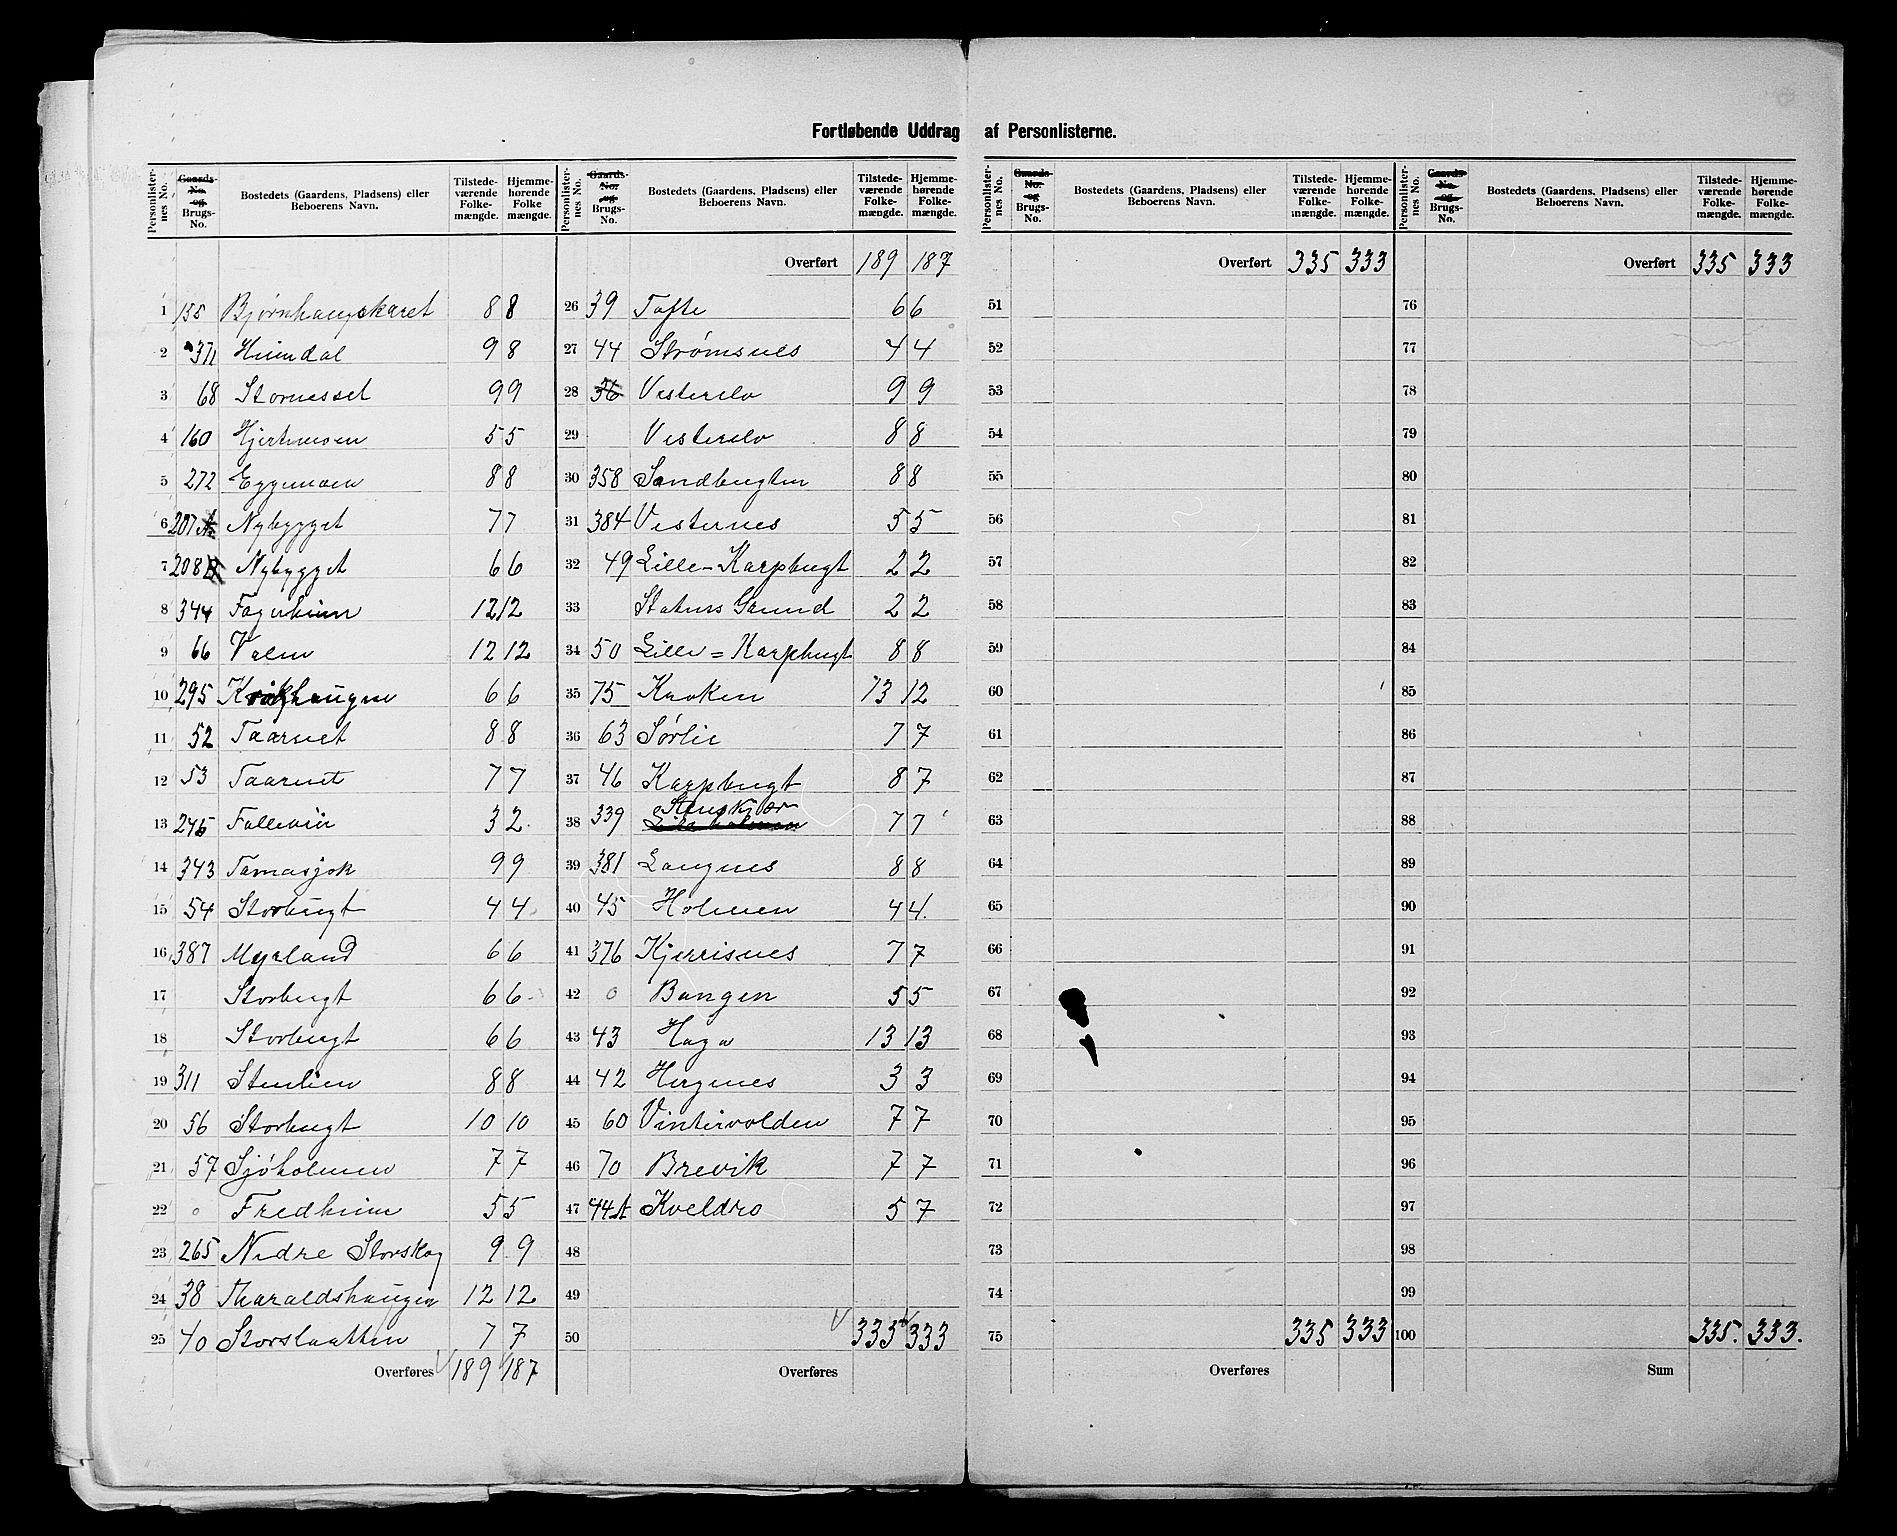 Fortløbende Uddrag af Personlisterne.
Personlister-nes No. Gaards-No. og Brugs-No. Bostedets (Gaardens, Pladsens) eller Beboerens Navn. Tilstede-værende Folke-mængde. Hjemme-hørende Folke mængde.
1 155 Bjørnhaugskaret 8 8
2 371 Heimdal 9 8
3 68 Stornesset 9 9
4 160 5 5
5 272 Eggemoen 8 8
6 207 A Nybygget 7 7
7 208 B Nybygget 6 6
8 344 Fagerheim 12 12
9 66 Valen 12 12
10 295 6 6
11 52 Taarnet 8 8
12 53 Taarnet 7 7
13 245 3 2
14 343 Tamasjok 9 9
15 54 Storbugt 4 4
16 387 Myrland 6 6
17 Storbugt 6 6
18 Storbugt 6 6
19 311 Stenlien 8 8
20 56 Storbugt 10 10
21 57 Sjøholmen 7 7
22 0 Fredheim 5 5
23 265 Nedre Storskog 9 9
24 38 Tharaldshaugen 12 12
25 40 Storslaatten 7 7
Overføres 189 187
Personlister-nes No. Gaards-No. og Brugs-No. Bostedets (Gaardens, Pladsens) eller Beboerens Navn. Tilstede-værende Folke-mængde. Hjemme-hørende Folke-mængde.
Overført 189 187
26 39 Tofte 6 6
27 44 Strømsnes 4 4
28 36 Vesterelv 9 9
29 Vesterelv 8 8
30 358 Sandbugten 8 8
31 384 Vesternes 5 5
32 49 Lille-Karpbugt 2 2
33 Statens Grund 2 2
34 50 Lille=Karpbugt 8 8
35 75 Kroken 13 12
36 63 Sørlie 7 7
37 46 Karpbugt 8 7
Stenskjær
38 339 7 7
39 381 Langnes 8 8
40 45 Holmen 4 4.
41 376 Kjerrisnes 7 7
42 0 Bangen 5 5
43 43 Haga 13 13
44 42 3 3
45 60 Vintervolden 7 7
46 70 Brevik 7 7
47 44A Kveldro 5 7
48
49
50 335 333
Overføres
Personlister-nes No. Gaards-No. og Brugs-No. Bostedets (Gaardens, Pladsens) eller Beboerens Navn. Tilstede-værende Folke-mængde. Hjemme-hørende Folke-mængde.
Overført 335 333
51
52
53
54
55
56
57
58
59
60
61
62
63
64
65
66
67
68
69
70
71
72
73
74
75 335 333
Overføres
Personlister-nes No. Gaards-No. og Brugs-No. Bostedets (Gaardens, Pladsens) eller Beboerens Navn. Tilstede-værende Folke-mængde. Hjemme-hørende Folke-mængde.
Overført 335 333
76
77
78
79
80
81
82
83
84
85
86
87
88
89
90
91
92
93
94
95
96
97
98
99
100 335. 333.
Sum